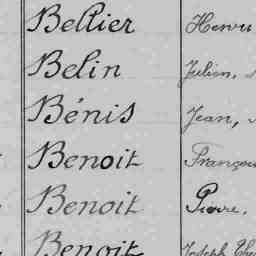 Beltier Henri
Belin Julien,
Bénis Jean,
Benoit François
Benoit Pierre.
Benoit Joseph